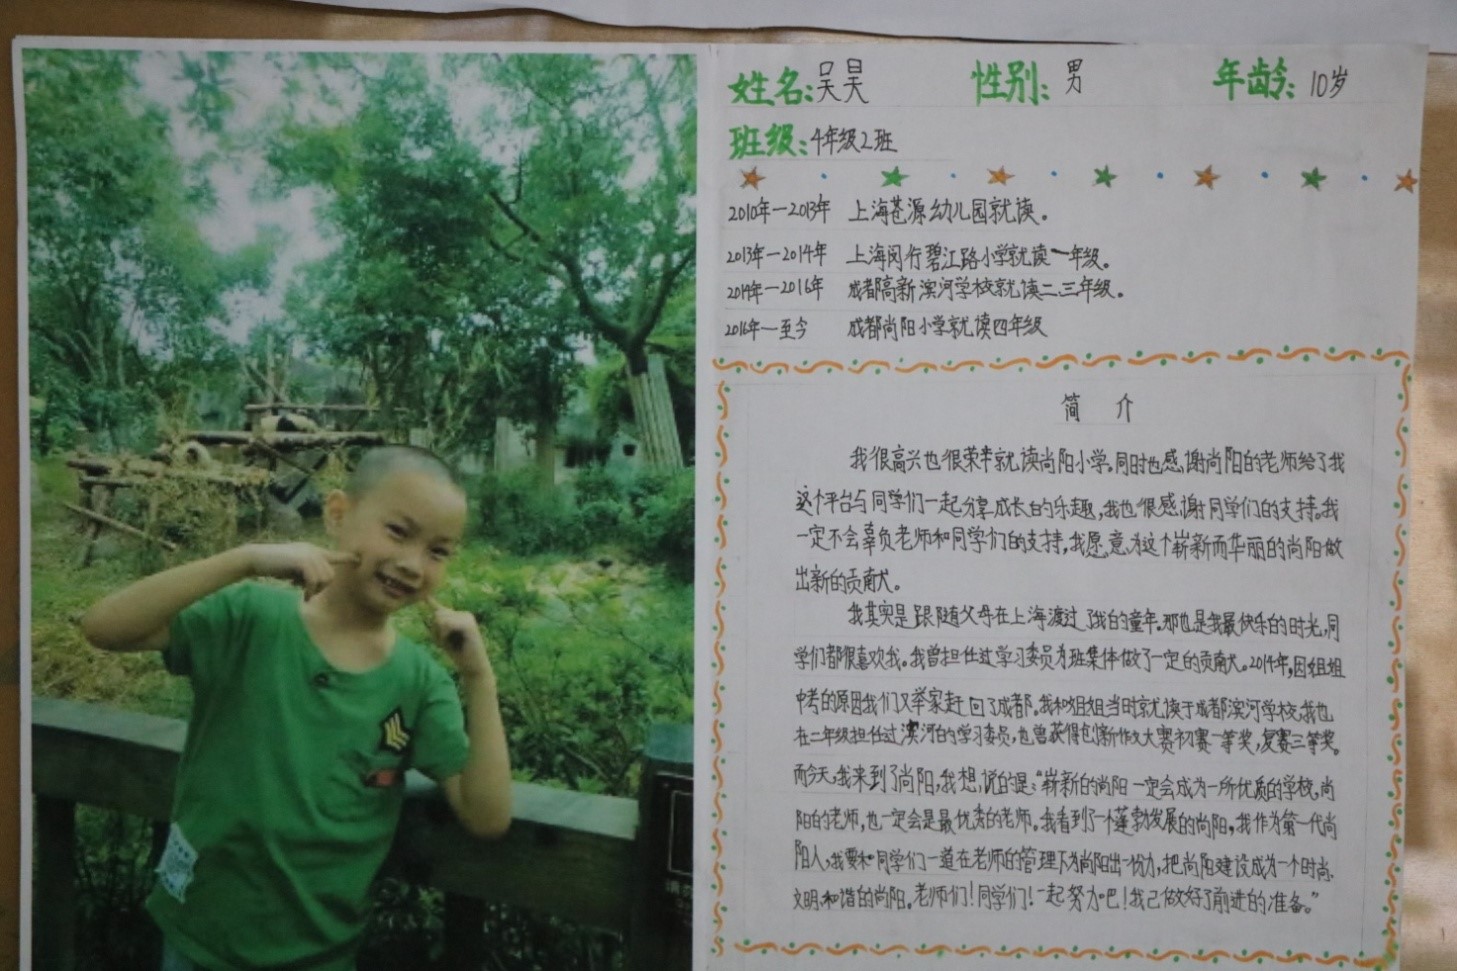 姓名:吴昊 性别:男 年龄:10岁
班级:4年级2班
2010年—2013年 上海苍源幼儿园就读。
2013年—2014年 上海闵行碧江路小学就读一年级。
2014年—2016年 成都高新滨河学校就读二、三年级。
2016年—至今 成都尚阳小学就读四年级
简 介
我很高兴也很荣幸就读尚阳小学。同时也感谢尚阳的老师给了我
这个平台与同学们一起分享成长的乐趣,我也很感谢同学们的支持。我
一定不会辜负老师和同学们的支持,我愿意为这个崭新而华丽的尚阳做
出新的贡献。
我其实是跟随父母在上海渡过了我的童年。那也是我最快乐的时光,同
学们都很喜欢我。我曾担任过学习委员为班集体做了一定的贡献。2014年,因姐姐
中考的原因我们又举家赶回了成都。我和姐姐当时就读于成都滨河学校,我也
在二年级担任过滨河的学习委员,也曾获得创新作文大赛初赛一等奖,复赛三等奖。
而今天,我来到了尚阳,我想说的是:“崭新的尚阳一定会成为一所优质的学校,尚
阳的老师,也一定会是最优秀的老师。我看到了一个蓬勃发展的尚阳,我作为第一代尚
阳人,我要和同学们一道在老师的管理下为尚阳出一份力,把尚阳建设成为一个时尚.
文明.和谐的尚阳。老师们!同学们!一起努力吧!我已做好了前进的准备。”